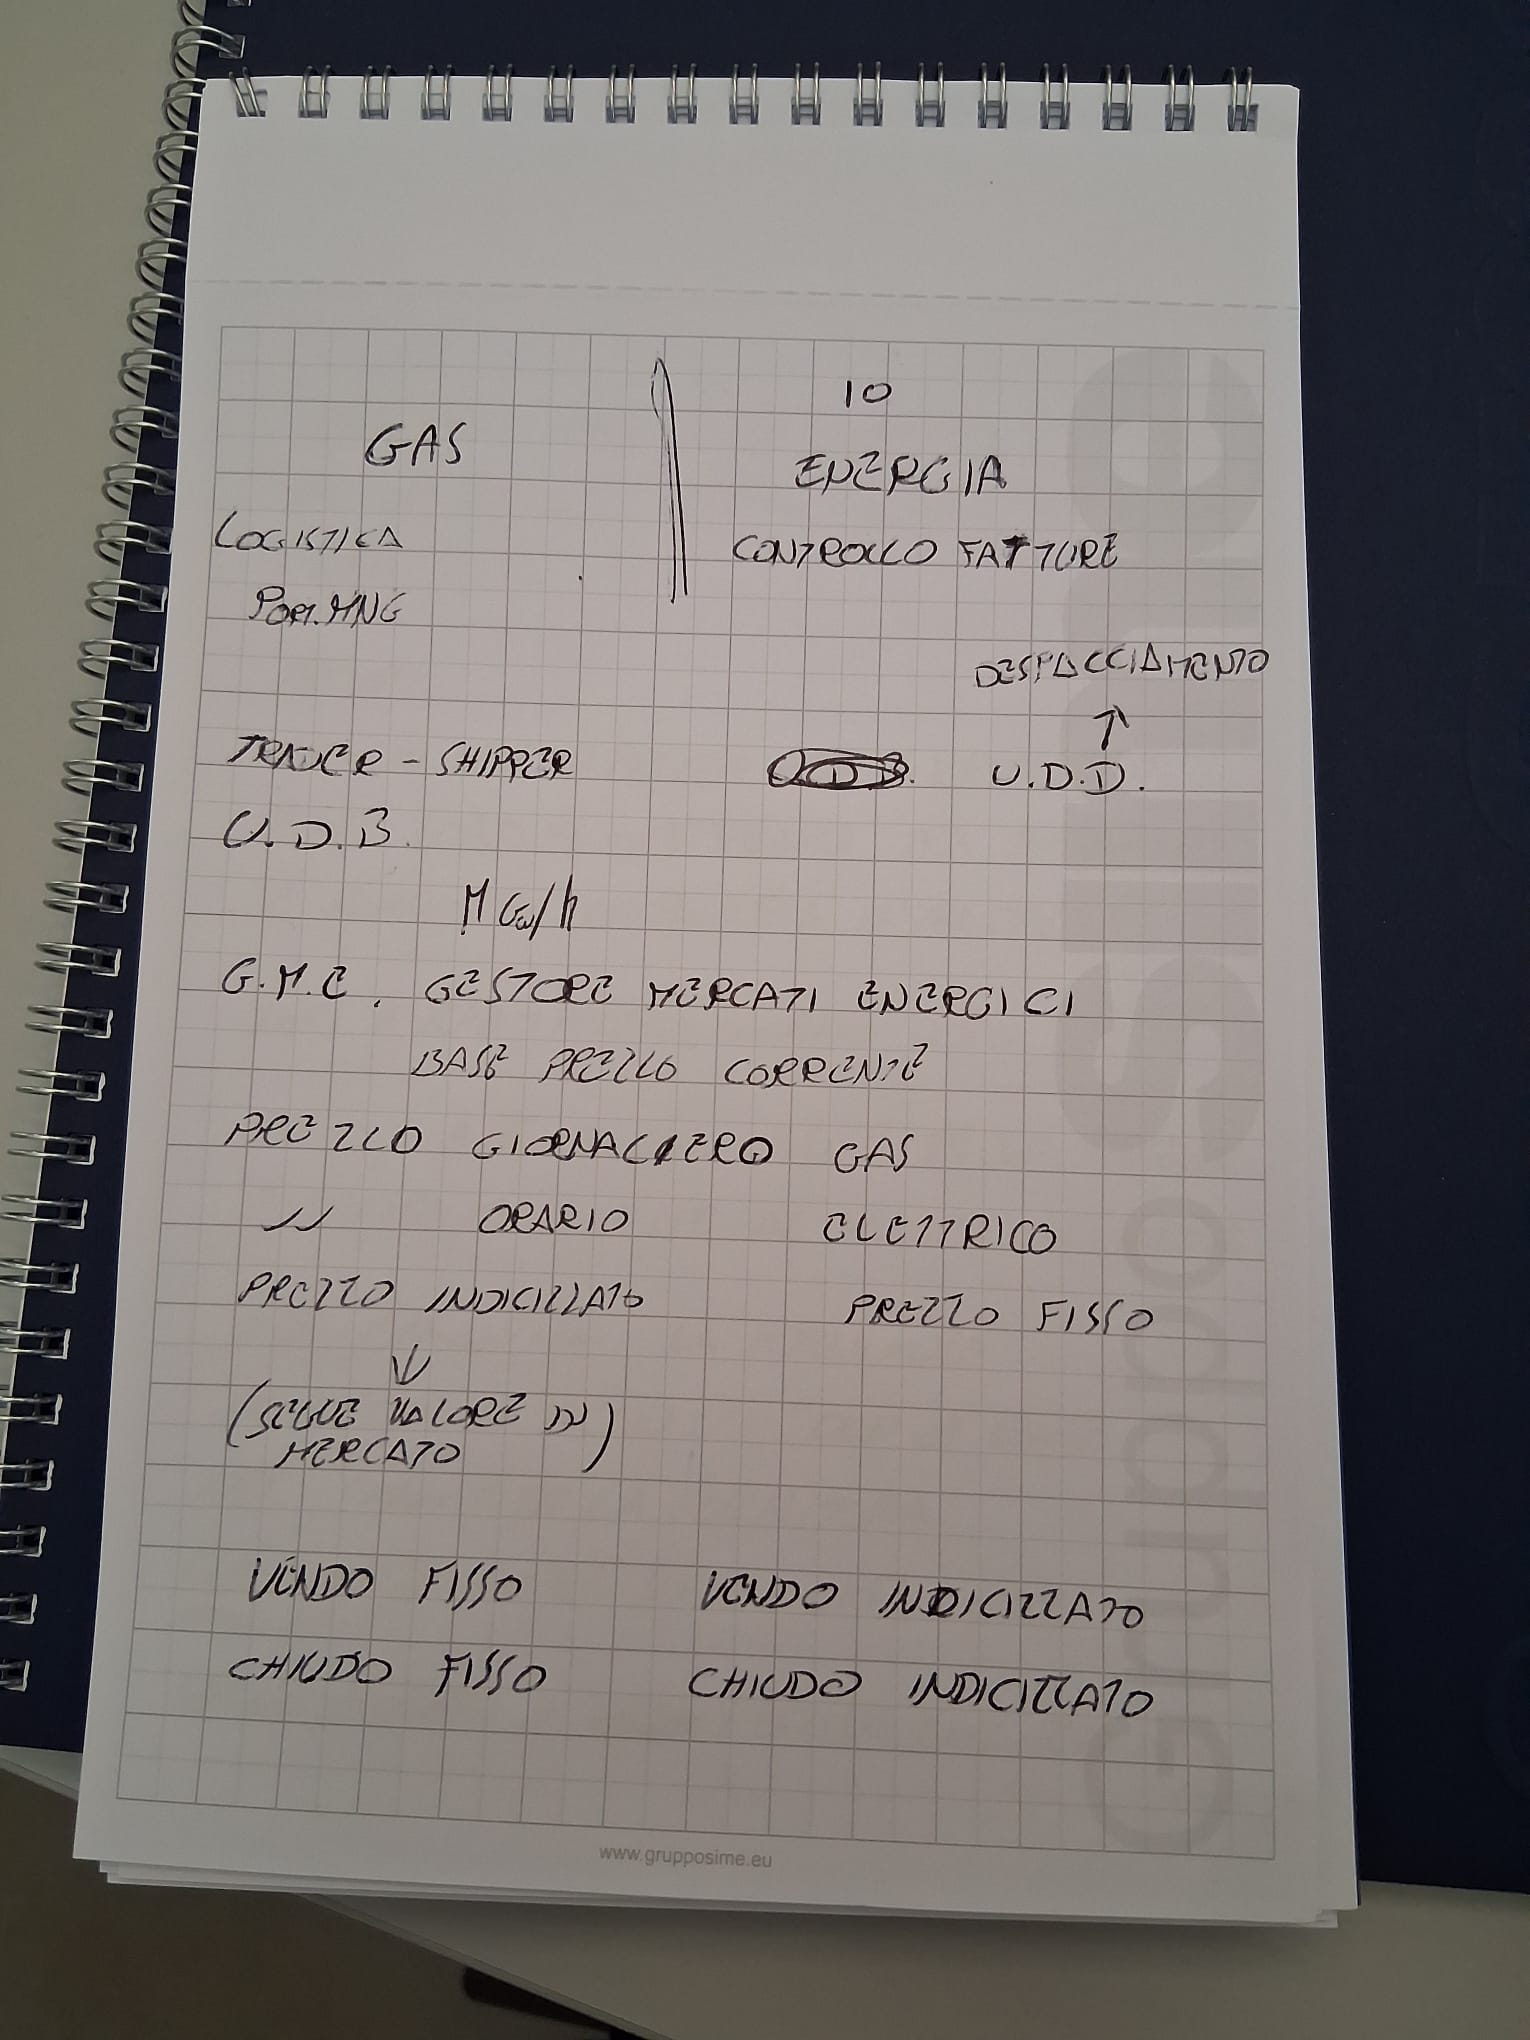 IO
GAS
ENERGIA
LOGISTICA
CONTROLLO FATTURE
PORT.MNG
DESPACCIAMENTO
↑
TRADER - SHIPPER
U.D.D.
U.D.B.
G.M.E. GESTORE MERCATI ENERGICI
BASE PREZZO CORRENTE
PREZZO GIORNALIERO GAS
〃 ORARIO ELETTRICO
PREZZO INDICIZZATO PREZZO FISSO
↓
(SEGUE VALORE IN
MERCATO)
VENDO FISSO VENDO INDICIZZATO
CHIUDO FISSO CHIUDO INDICIZZATO
www.grupposime.eu
GrupoSime